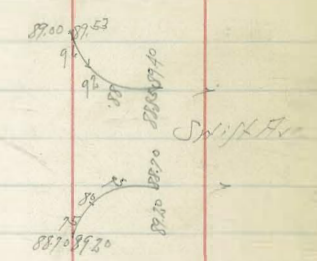 89.00 89.53
92
92
88
88.80 89.40
Swift Ave
88.20
75
80
89.20
75
88.70 89.20